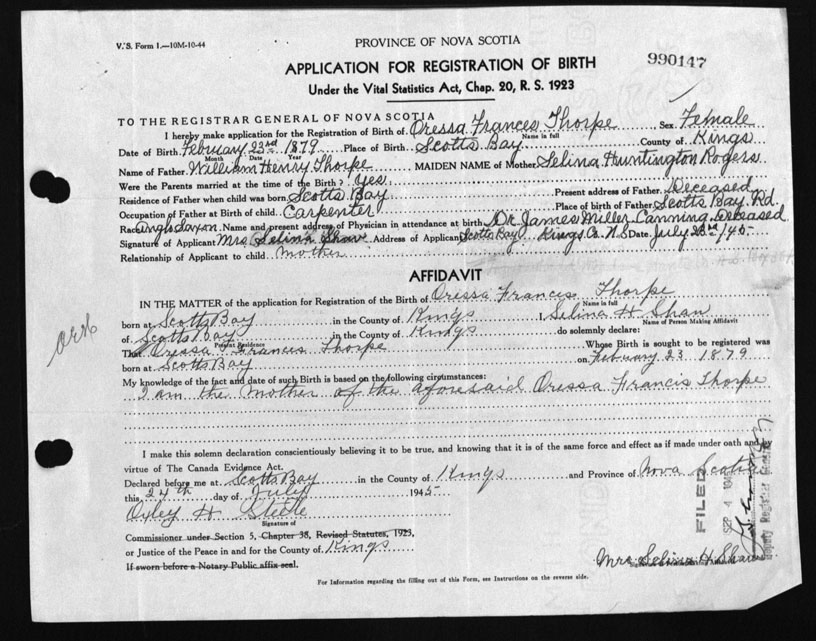 V.S. Form 1.—10M-10-44
PROVINCE OF NOVA SCOTIA
990147
APPLICATION FOR REGISTRATION OF BIRTH
Under the Vital Statistics Act, Chap. 20, R. S. 1923
TO THE REGISTRAR GENERAL OF NOVA SCOTIA
I hereby make application for the Registration of Birth of Oressa Frances Thorpe, Sex Female
Name in full
Date of Birth February 23rd 1879 Place of Birth Scotts Bay County of Kings
Month Date Year
Name of Father William Henry Thorpe MAIDEN NAME of Mother Selina Huntington Rogers
Were the Parents married at time of the Birth? Yes
Residence of Father when child was born Scotts Bay Present address of Father Deceased
Occupation of Father at Birth of child Carpenter Place of birth of Father Scotts Bay Rd.
Race Anglo Saxon Name and present address of Physician in attendance at birth Dr James Miller Canning Deceased
Signature of Applicant Mrs Selina Shaw Address of Applicant Scotts Bay Kings Co. N.S Date July 23rd /45
Relationship of Applicant to child mother
AFFIDAVIT
IN THE MATTER of the application for Registration of the Birth of Oressa Francis Thorpe
Name in full
born at Scotts Bay in the County of Kings I, Selina H Shaw
Name of Person Making Affidavit
of Scotts Bay in the County of Kings do solemnly declare:
Present Residence
That Oressa Frances Thorpe Whose Birth is sought to be registered was
born at Scotts Bay on February 23 1879
My knowledge of the fact and date of such Birth is based on the following circumstances:
I am the mother of the aforesaid Oressa Francis Thorpe
I make this solemn declaration conscientiously believing it to be true, and knowing that it is of the same force and effect as if made under oath and by
virtue of The Canada Evidence Act.
Declared before me at Scotts Bay in the County of Kings and Province of Nova Scotia
this 24th day of July 1945
Oxley H Steele
Signature of
Commissioner under Section 5, Chapter 38, Revised Statutes, 1923,
or Justice of the Peace in and for the County of Kings
If sworn before a Notary Public affix seal.
Mrs Selina H Shaw
For Information regarding the filling out of this Form, see Instructions on the reverse side.
FILED
SEP 4
Deputy Registrar General